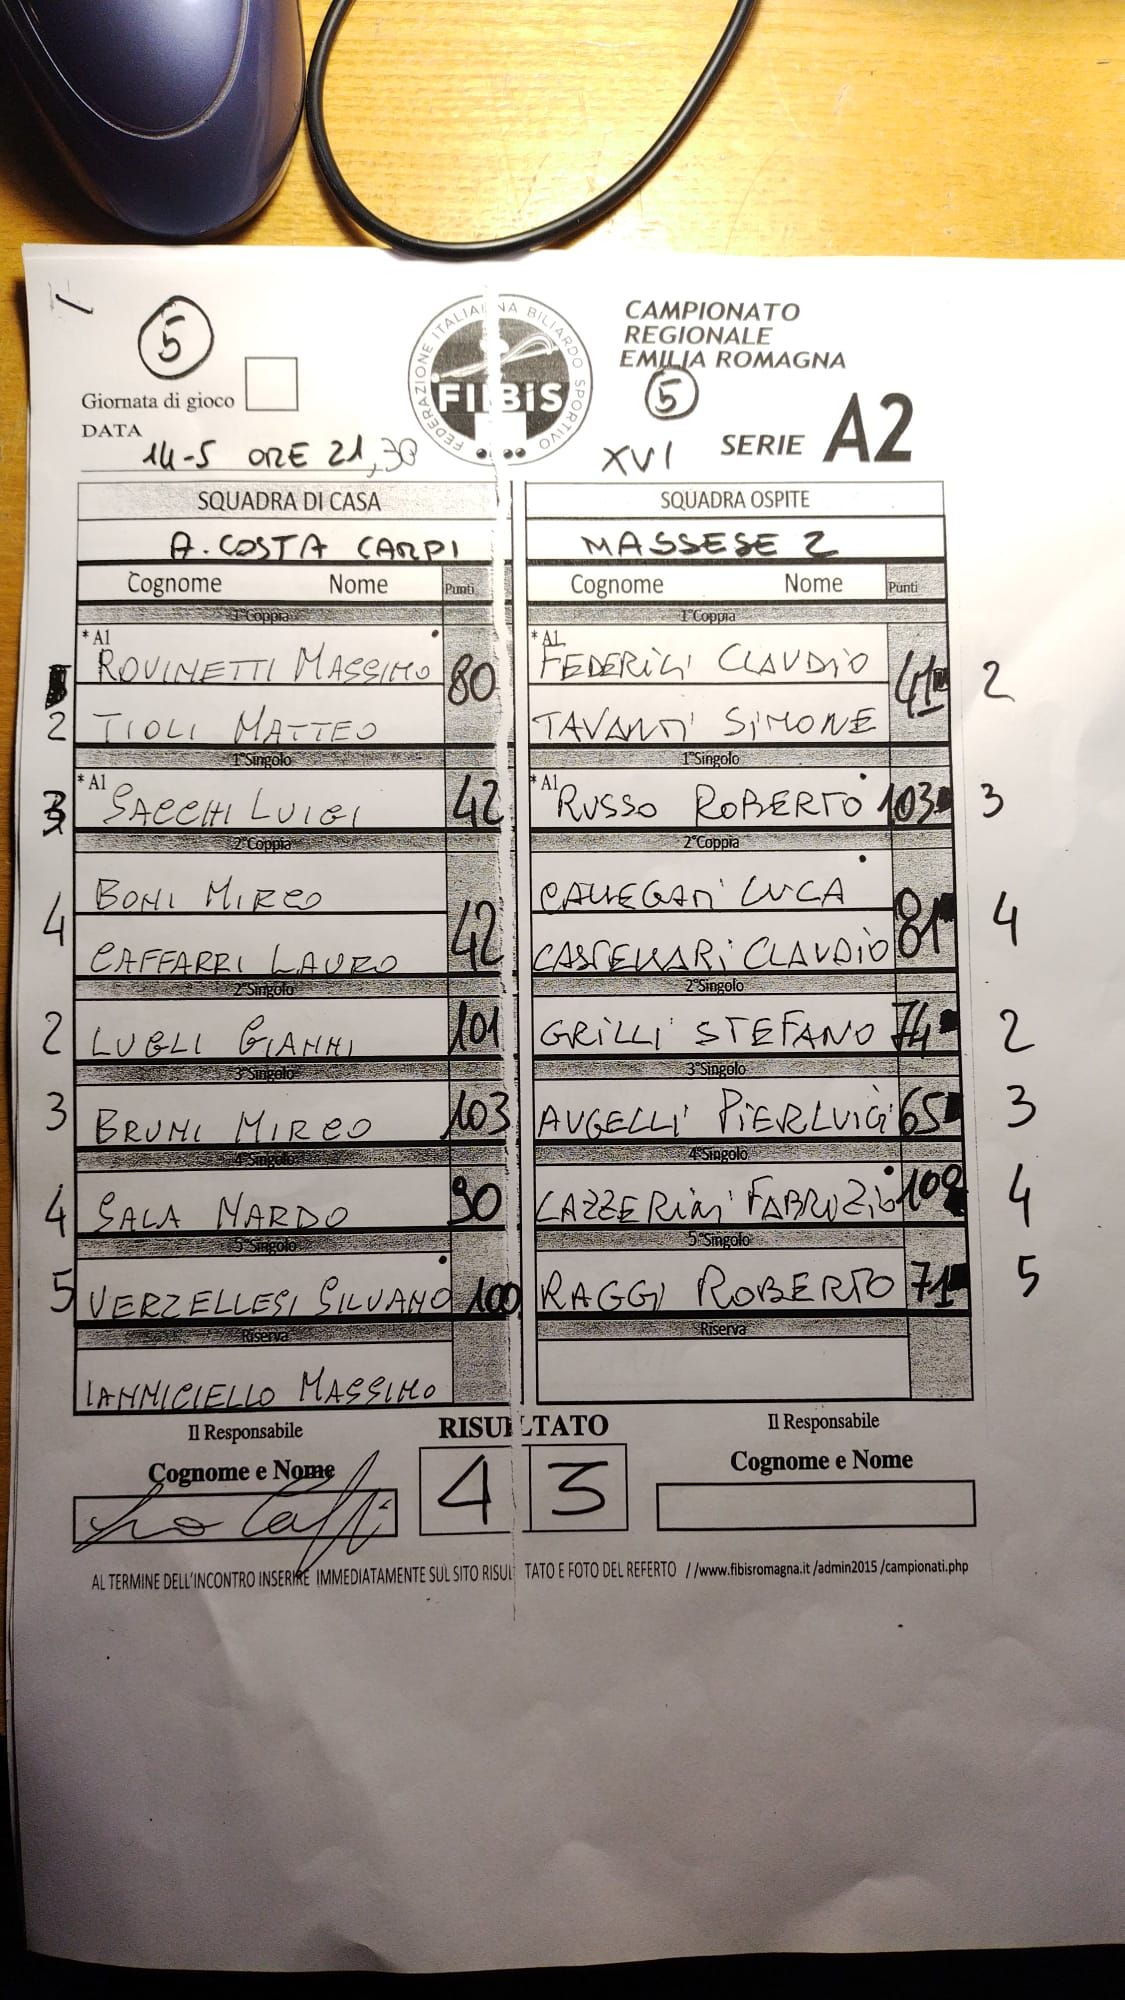 5
FEDERAZIONE ITALIANA BILIARDO SPORTIVO
FIBIS
CAMPIONATO
REGIONALE
EMILIA ROMAGNA
Giornata di gioco
5
DATA
14-5 ORE 21,30
XVI
SERIE A2
SQUADRA DI CASA SQUADRA OSPITE
A. COSTA CARPI MASSESE 2
Cognome Nome Punti Cognome Nome Punti
1°Coppia 1°Coppia
*A1 ROVINETTI MASSIMO 80 *A1 FEDERICI CLAUDIO 41 2
2 TIOLI MATTEO TAVANTI SIMONE
1°Singolo 1°Singolo
3 *A1 SACCHI LUIGI 42 *A1 RUSSO ROBERTO 103 3
2°Coppia 2°Coppia
4 BONI MIRCO 42 CALLEGARI LUCA 81 4
CAFFARRI LAURO CASTELLARI CLAUDIO
2°Singolo 2°Singolo
2 LUGLI GIANNI 101 GRILLI STEFANO 74 2
3°Singolo 3°Singolo
3 BRUNI MIRCO 103 AUGELLI PIERLUIGI 65 3
4°Singolo 4°Singolo
4 SALA NARDO 90 LAZZERINI FABRIZIO 102 4
5°Singolo 5°Singolo
5 VERZELLESI SILVANO 100 RAGGI ROBERTO 71 5
Riserva Riserva
IANNICIELLO MASSIMO
Il Responsabile RISULTATO Il Responsabile
Cognome e Nome 4 3 Cognome e Nome
AL TERMINE DELL'INCONTRO INSERIRE IMMEDIATAMENTE SUL SITO RISULTATO E FOTO DEL REFERTO //www.fibisromagna.it/admin2015/campionati.php